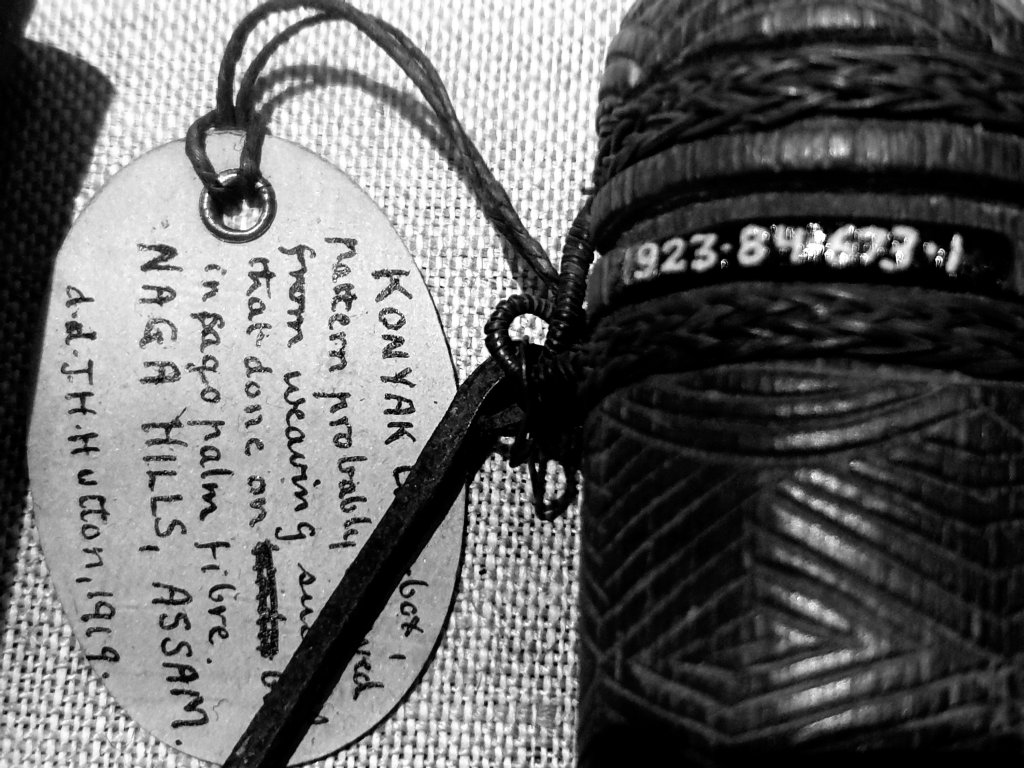 KONYAK box,
pattern probably
from weaving
that done on
in sago palm fibre.
NAGA HILLS, ASSAM.
d.d. J.H. Hutton, 1919.
1923.84.673.1